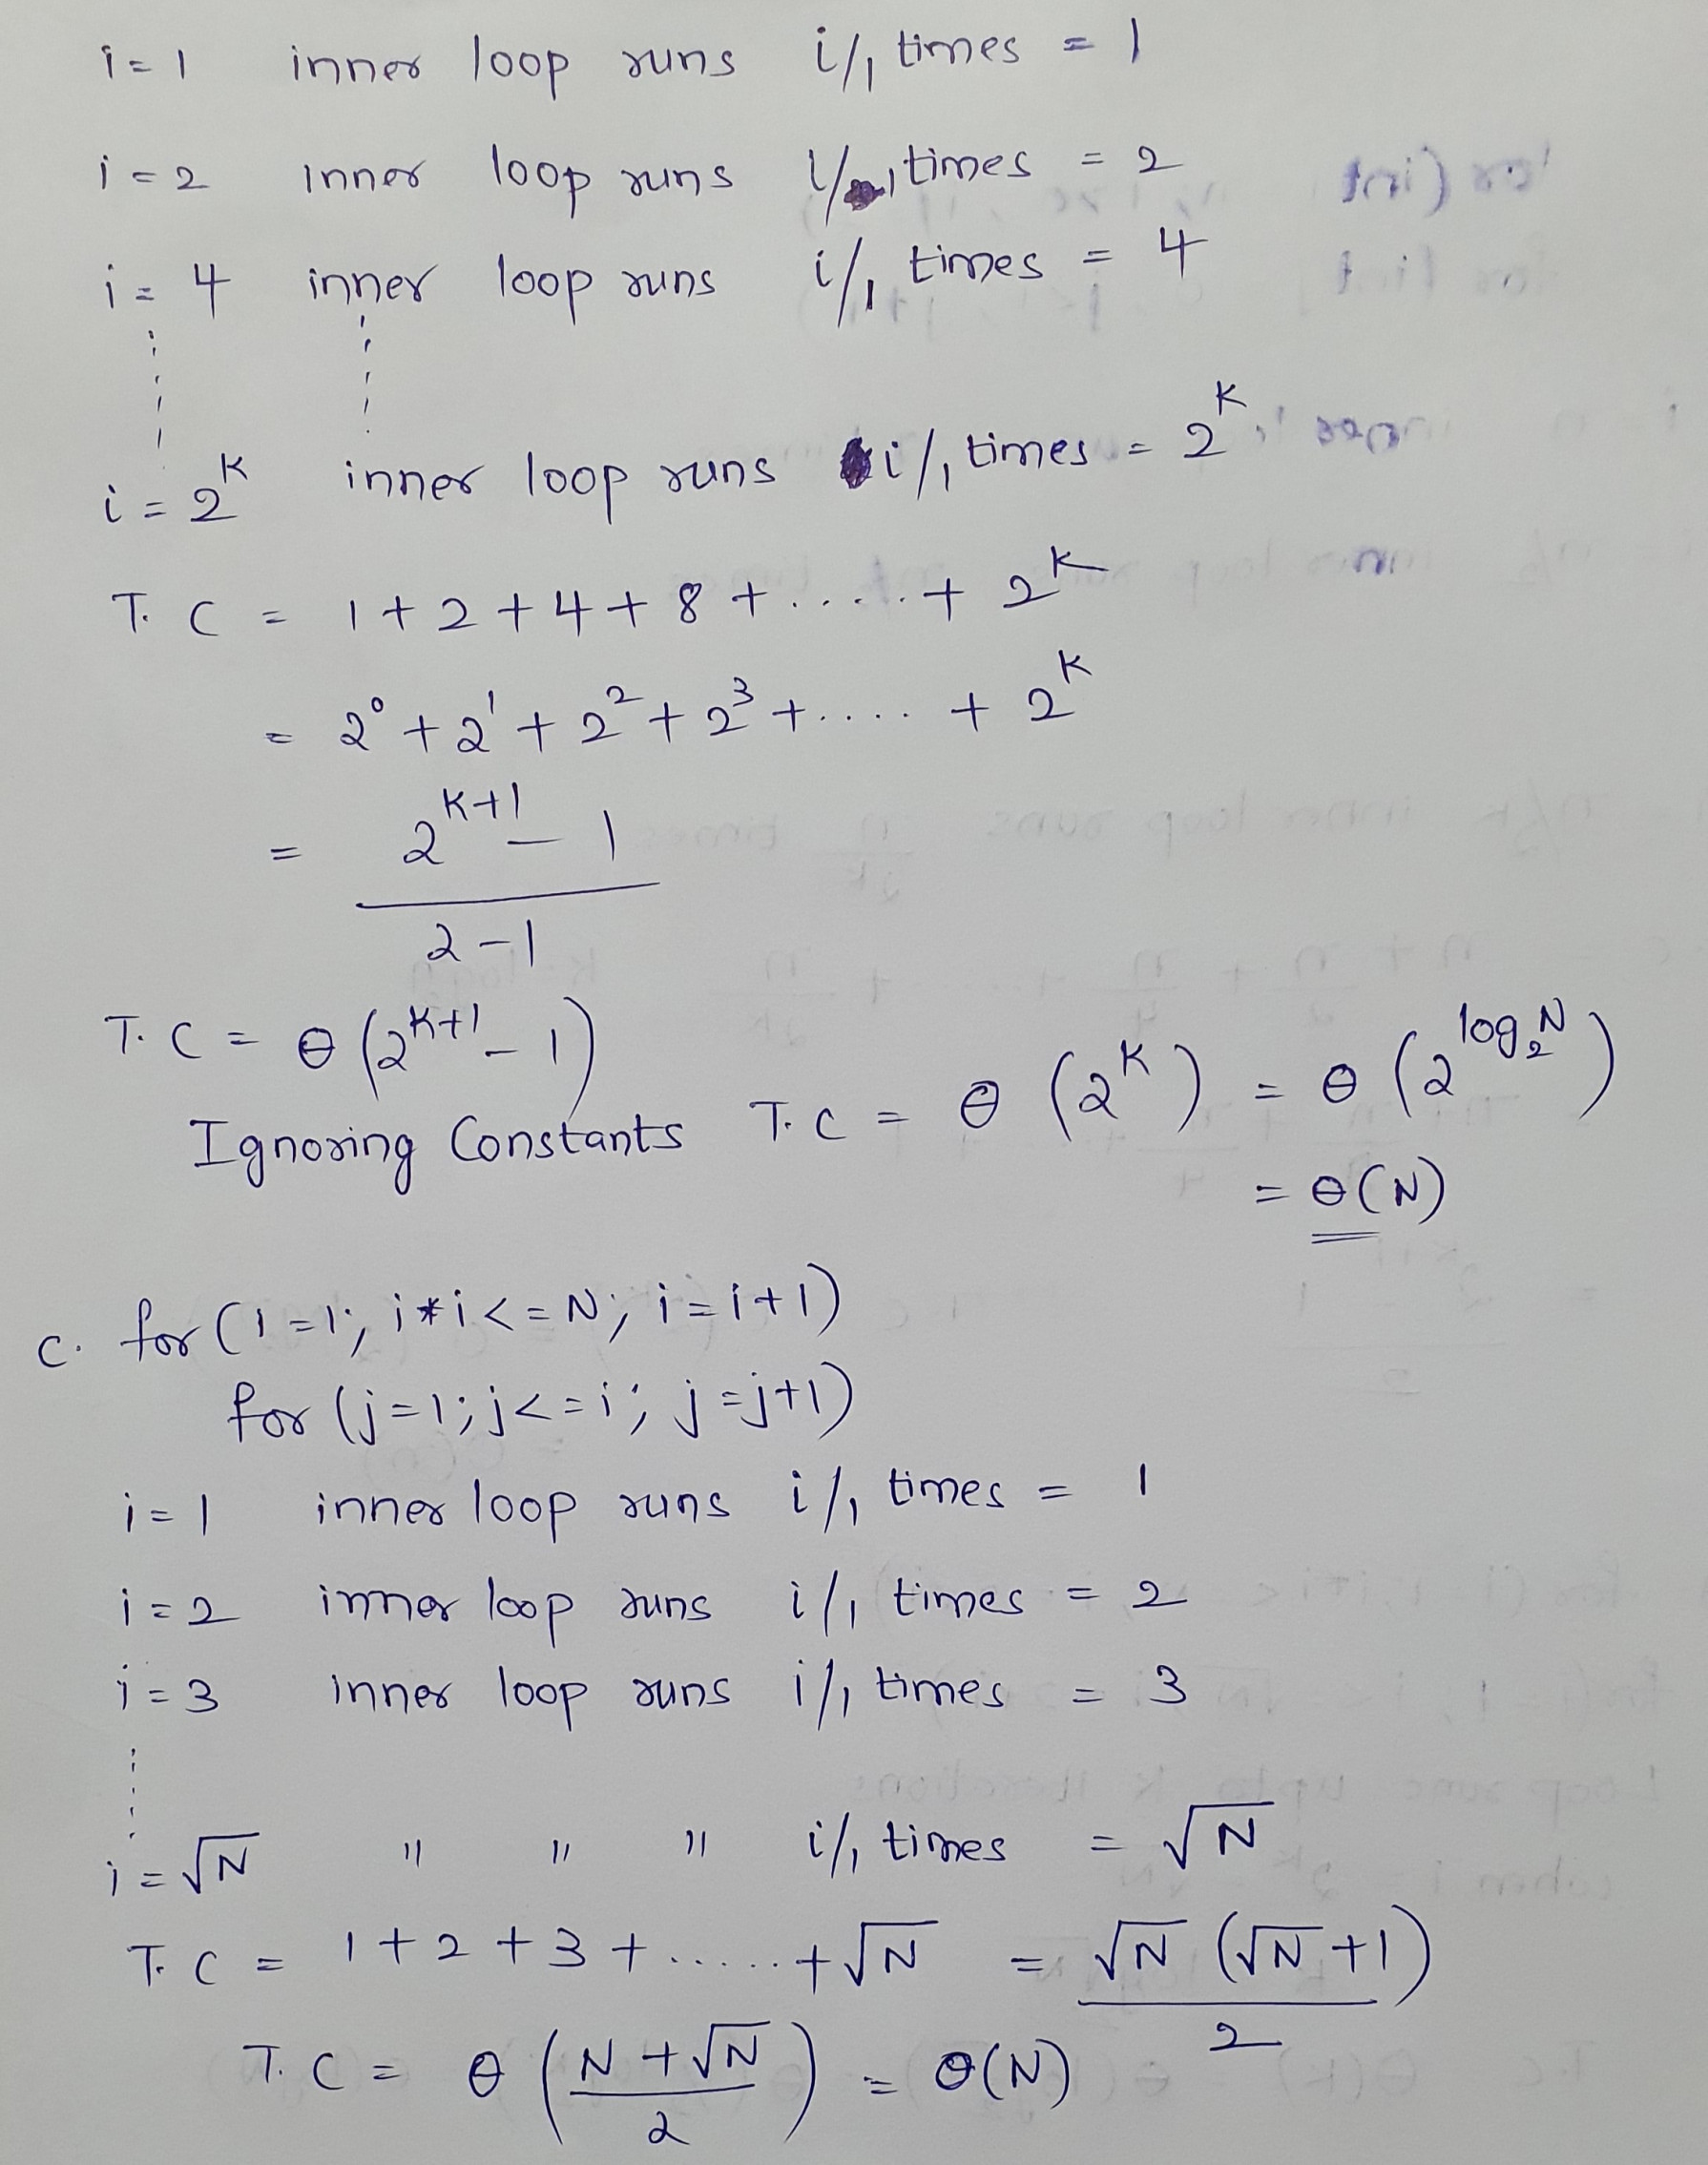 i=1 inner loop runs i/1 times = 1
i=2 inner loop runs i/1 times = 2
i=4 inner loop runs i/1 times = 4
i=2^K inner loop runs i/1 times = 2^K
T.C = 1+2+4+8+.....+ 2^K
= 2^0+2^1+2^2+2^3+.... + 2^K
= 2^(K+1) - 1
2-1
T.C = θ(2^(K+1) - 1)
Ignoring Constants T.C = θ(2^K) = θ(2^(log₂N))
= θ(N)
c. for(i=1; i*i<=N; i=i+1)
for(j=1; j<=i; j=j+1)
i=1 inner loop runs i/1 times = 1
i=2 inner loop runs i/1 times = 2
i=3 inner loop runs i/1 times = 3
i=√N " " " i/1 times = √N
T.C = 1+2+3+......+√N = √N (√N+1)
2
T.C = θ(N+√N / 2) = θ(N)